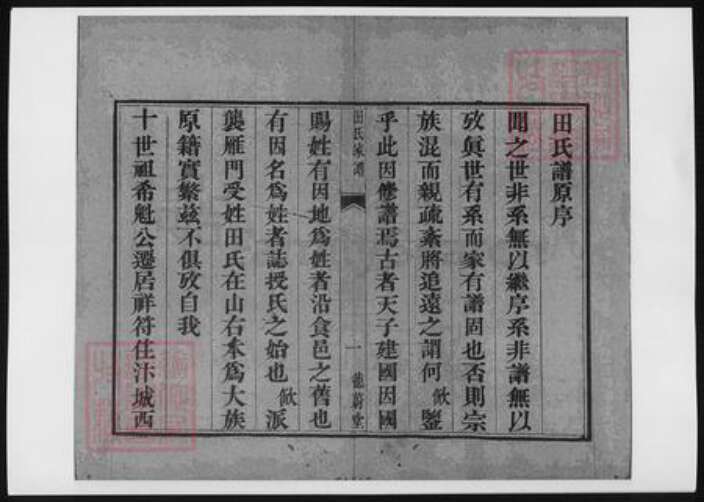 田氏譜原序
聞之世非系無以繼序系非譜無以
攷眞世有系而家有譜固也否則宗
族混而親疏紊將追遠之謂何歟鑒
乎此因修譜焉古者天子建國因國
田氏家譜
一
賜姓有因地爲姓者沿食邑之舊也
有因名爲姓者誌授氏之始也歟派
襲雁門受姓田氏在山右本爲大族
原籍實繁兹不俱攷自我
十世祖希魁公遷居祥符住汴城西